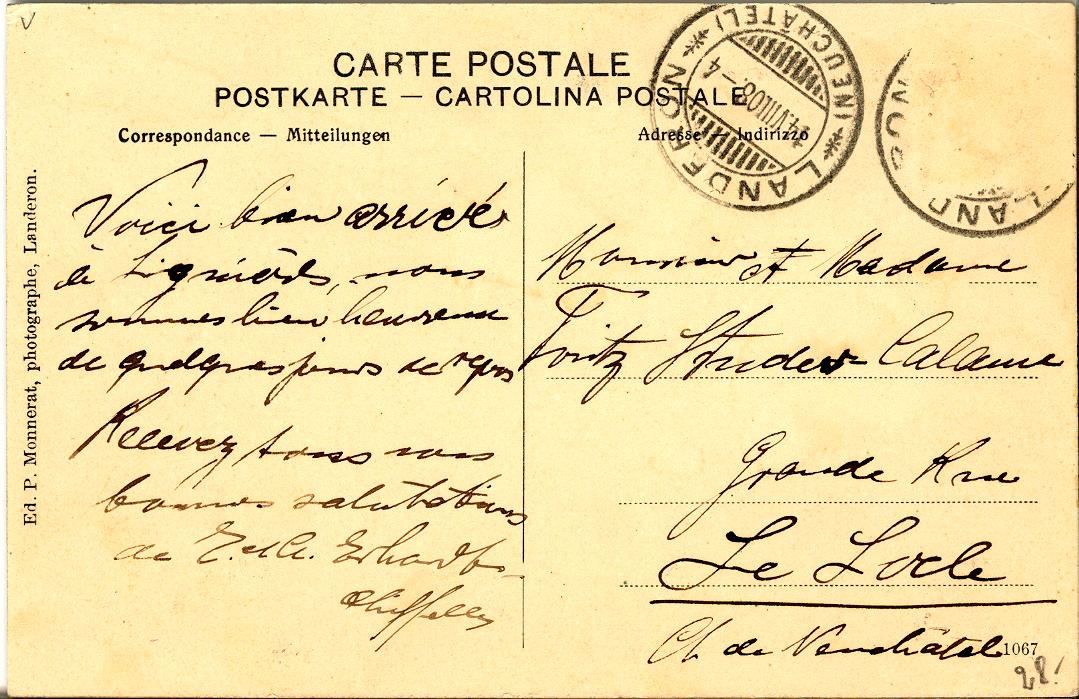 CARTE POSTALE
POSTKARTE — CARTOLINA POSTALE
Correspondance — Mitteilungen
Adresse — Indirizzo
LANDERON
(NEUCHÂTEL)
VIII08 – 4
LAND
Ed. P. Monnerat, photographe, Landeron.
Voici bien arrivés
de Lignières, nous
sommes bien heureux
de quelques jours de repos
Recevez tous nos
bonnes salutations
de E. et A. Erhardt
Monsieur et Madame
Fritz Studer-Calame
Grande Rue
Le Locle
Ct. de Neuchâtel
1067
28!